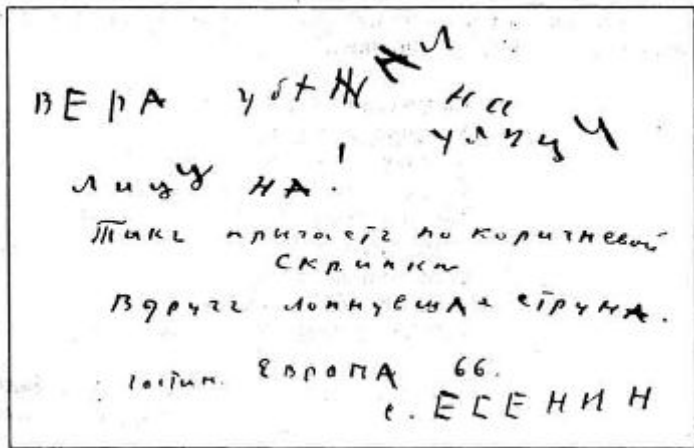 ВЕРА убѣЖАЛ на
улицУ
лицу НА!
Такъ прыгаетъ по коричневой
Скрипки
Вдругъ лопнувшАя струнА.
гостин. ЕВРОПА 66.
с. ЕСЕНИН